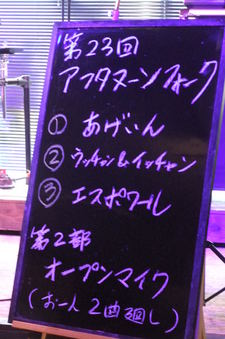 第23回
アフタヌーンフォーク
① あげいん
② ラッチャン&イッチャン
③ エスポワール
第2部
オープンマイク
(お一人2曲廻し)